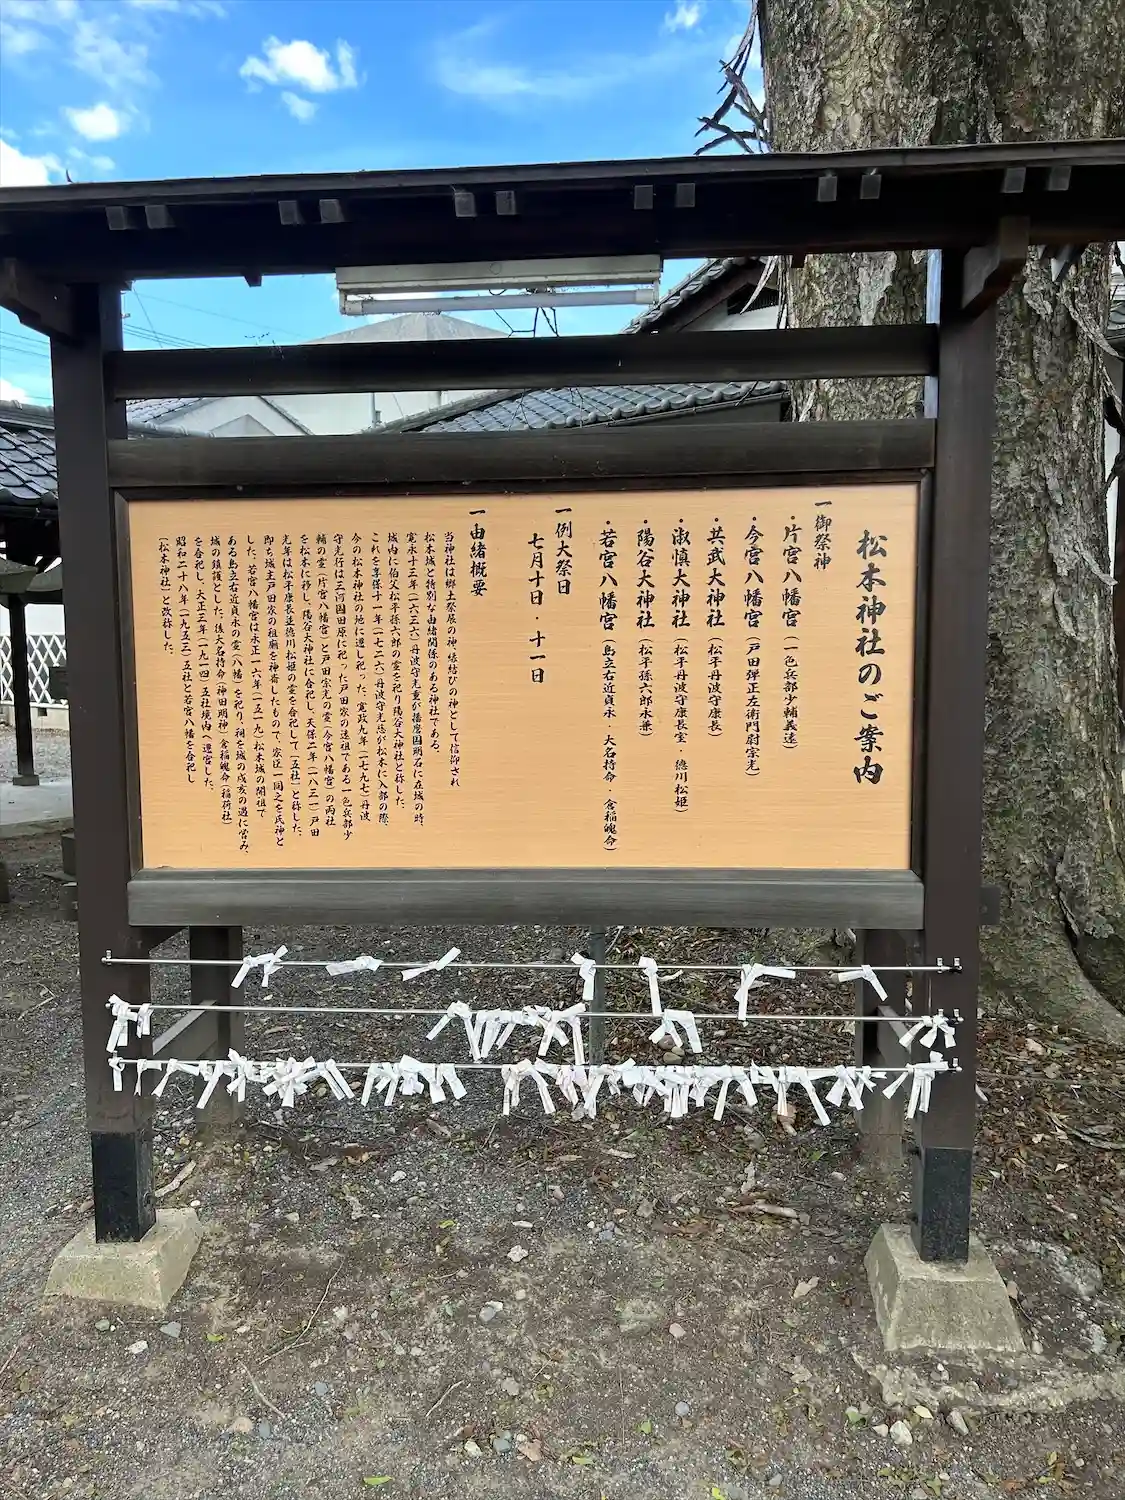 松本神社のご案内
一御祭神
・片宮八幡宮(一色兵部少輔義遠)
・今宮八幡宮(戸田弾正左衛門尉宗光)
・共武大神社(松平丹波守康長)
・淑慎大神社(松平丹波守康長室・徳川松姫)
・陽谷大神社(松平孫六郎永兼)
・若宮八幡宮(島立右近貞永・大名持命・倉稲魄命)
一例大祭日
七月十日・十一日
一由緒概要
当神社は郷土発展の神、縁結びの神として信仰され
松本城と特別な由緒関係のある神社である。
寛永十三年(一六三六)丹波守光重が播磨国明石に在城の時、
城内に伯父松平孫六郎の霊を祀り陽谷大神社と称した。
これを享保十一年(一七二六)丹波守光慈が松本に入部の際、
今の松本神社の地に遷し祀った。寛政九年(一七九七)丹波
守光行は三河国田原に祀った戸田家の遠祖である一色兵部少
輔の霊(片宮八幡宮)と戸田宗光の霊(今宮八幡宮)の両社
を松本に移し、陽谷大神社に合祀し、天保二年(一八三一)戸田
光年は松平康長並徳川松姫の霊を合祀して(五社)と称した。
即ち城主戸田家の祖廟を神斎したもので、家臣一同之を氏神と
した。若宮八幡宮は永正一六年(一五一九)松本城の開祖で
ある島立右近貞永の霊(八幡)を祀り、祠を城の戌亥の遇に営み、
城の鎮護とした。後大名持命(神田明神)倉稲魄命(稲荷社)
を合祀し、大正三年(一九一四)五社境内へ遷宮した。
昭和二十八年(一九五三)五社と若宮八幡を合祀し
(松本神社)と改称した。